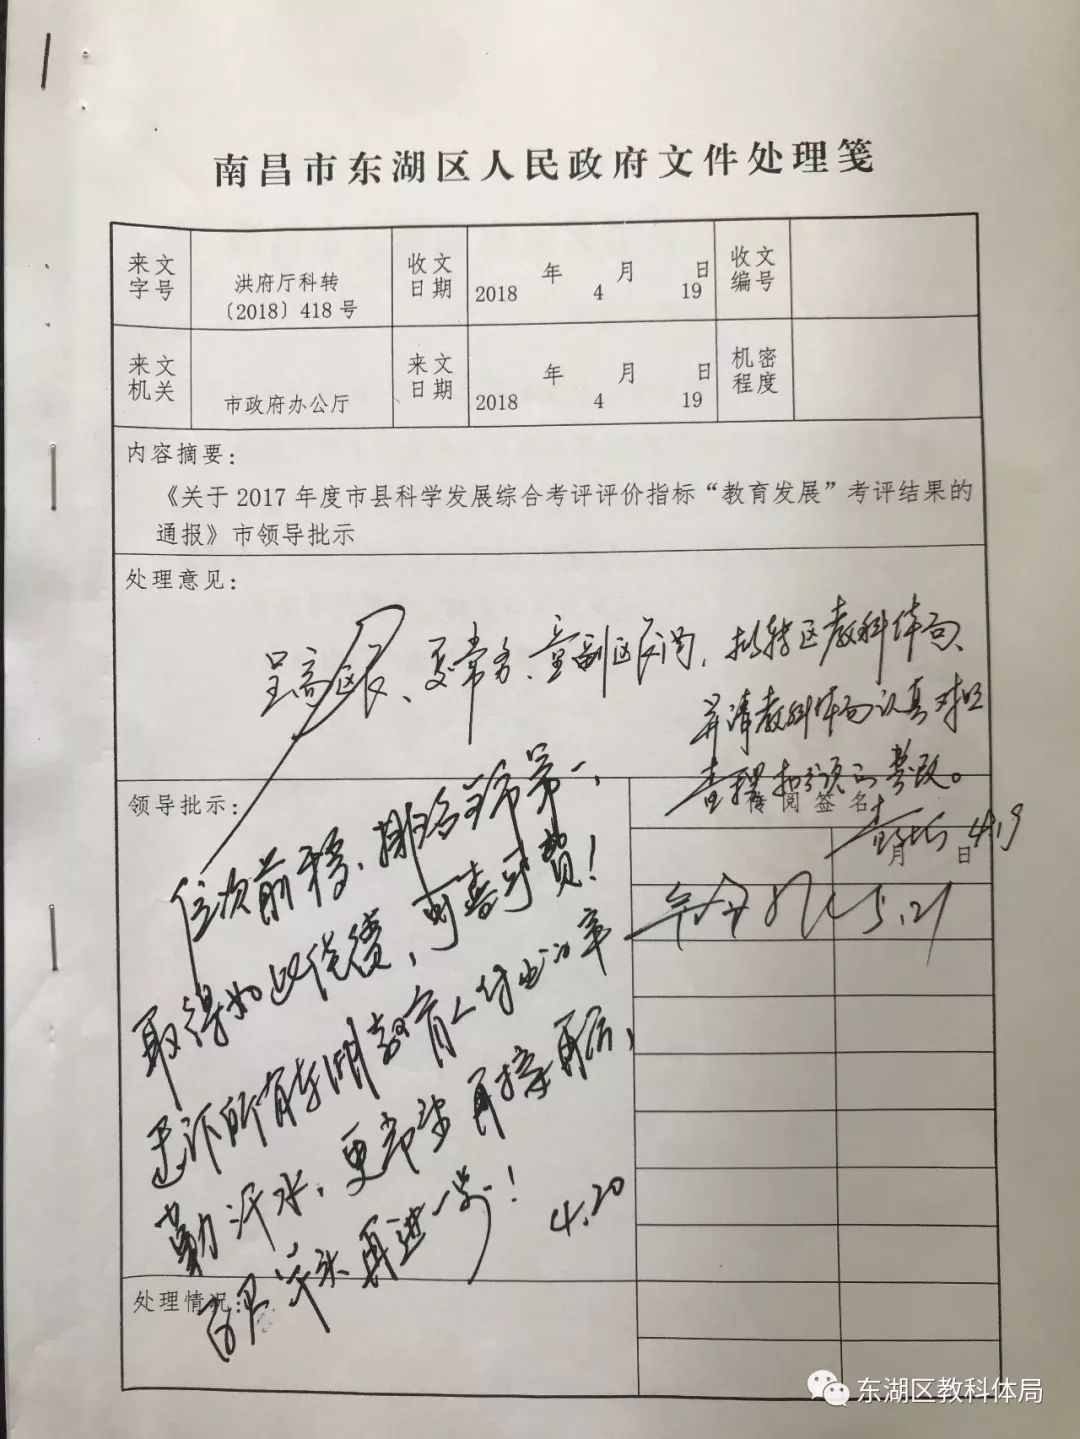 南昌市东湖区人民政府文件处理笺
来文字号
洪府厅科转〔2018〕418号
收文日期
2018年4月19日
收文编号
来文机关
市政府办公厅
来文日期
2018年4月19日
机密程度
内容摘要：
《关于2017年度市县科学发展综合考评评价指标“教育发展”考评结果的
通报》市领导批示
处理意见：
呈高区长、夏常务、童副区长阅，拟转区教科体局、
并请教科体局认真对照
查摆扣分项的整改。
4.19
领导批示：
传阅签名
月 日
位次前移，排名全市第一，
取得如此佳绩，可喜可贺！
这是所有东湖教育人付出的辛
勤汗水，更希望再接再厉，
百尺竿头再进一步！
4.20
5.21
处理情况：
东湖区教科体局